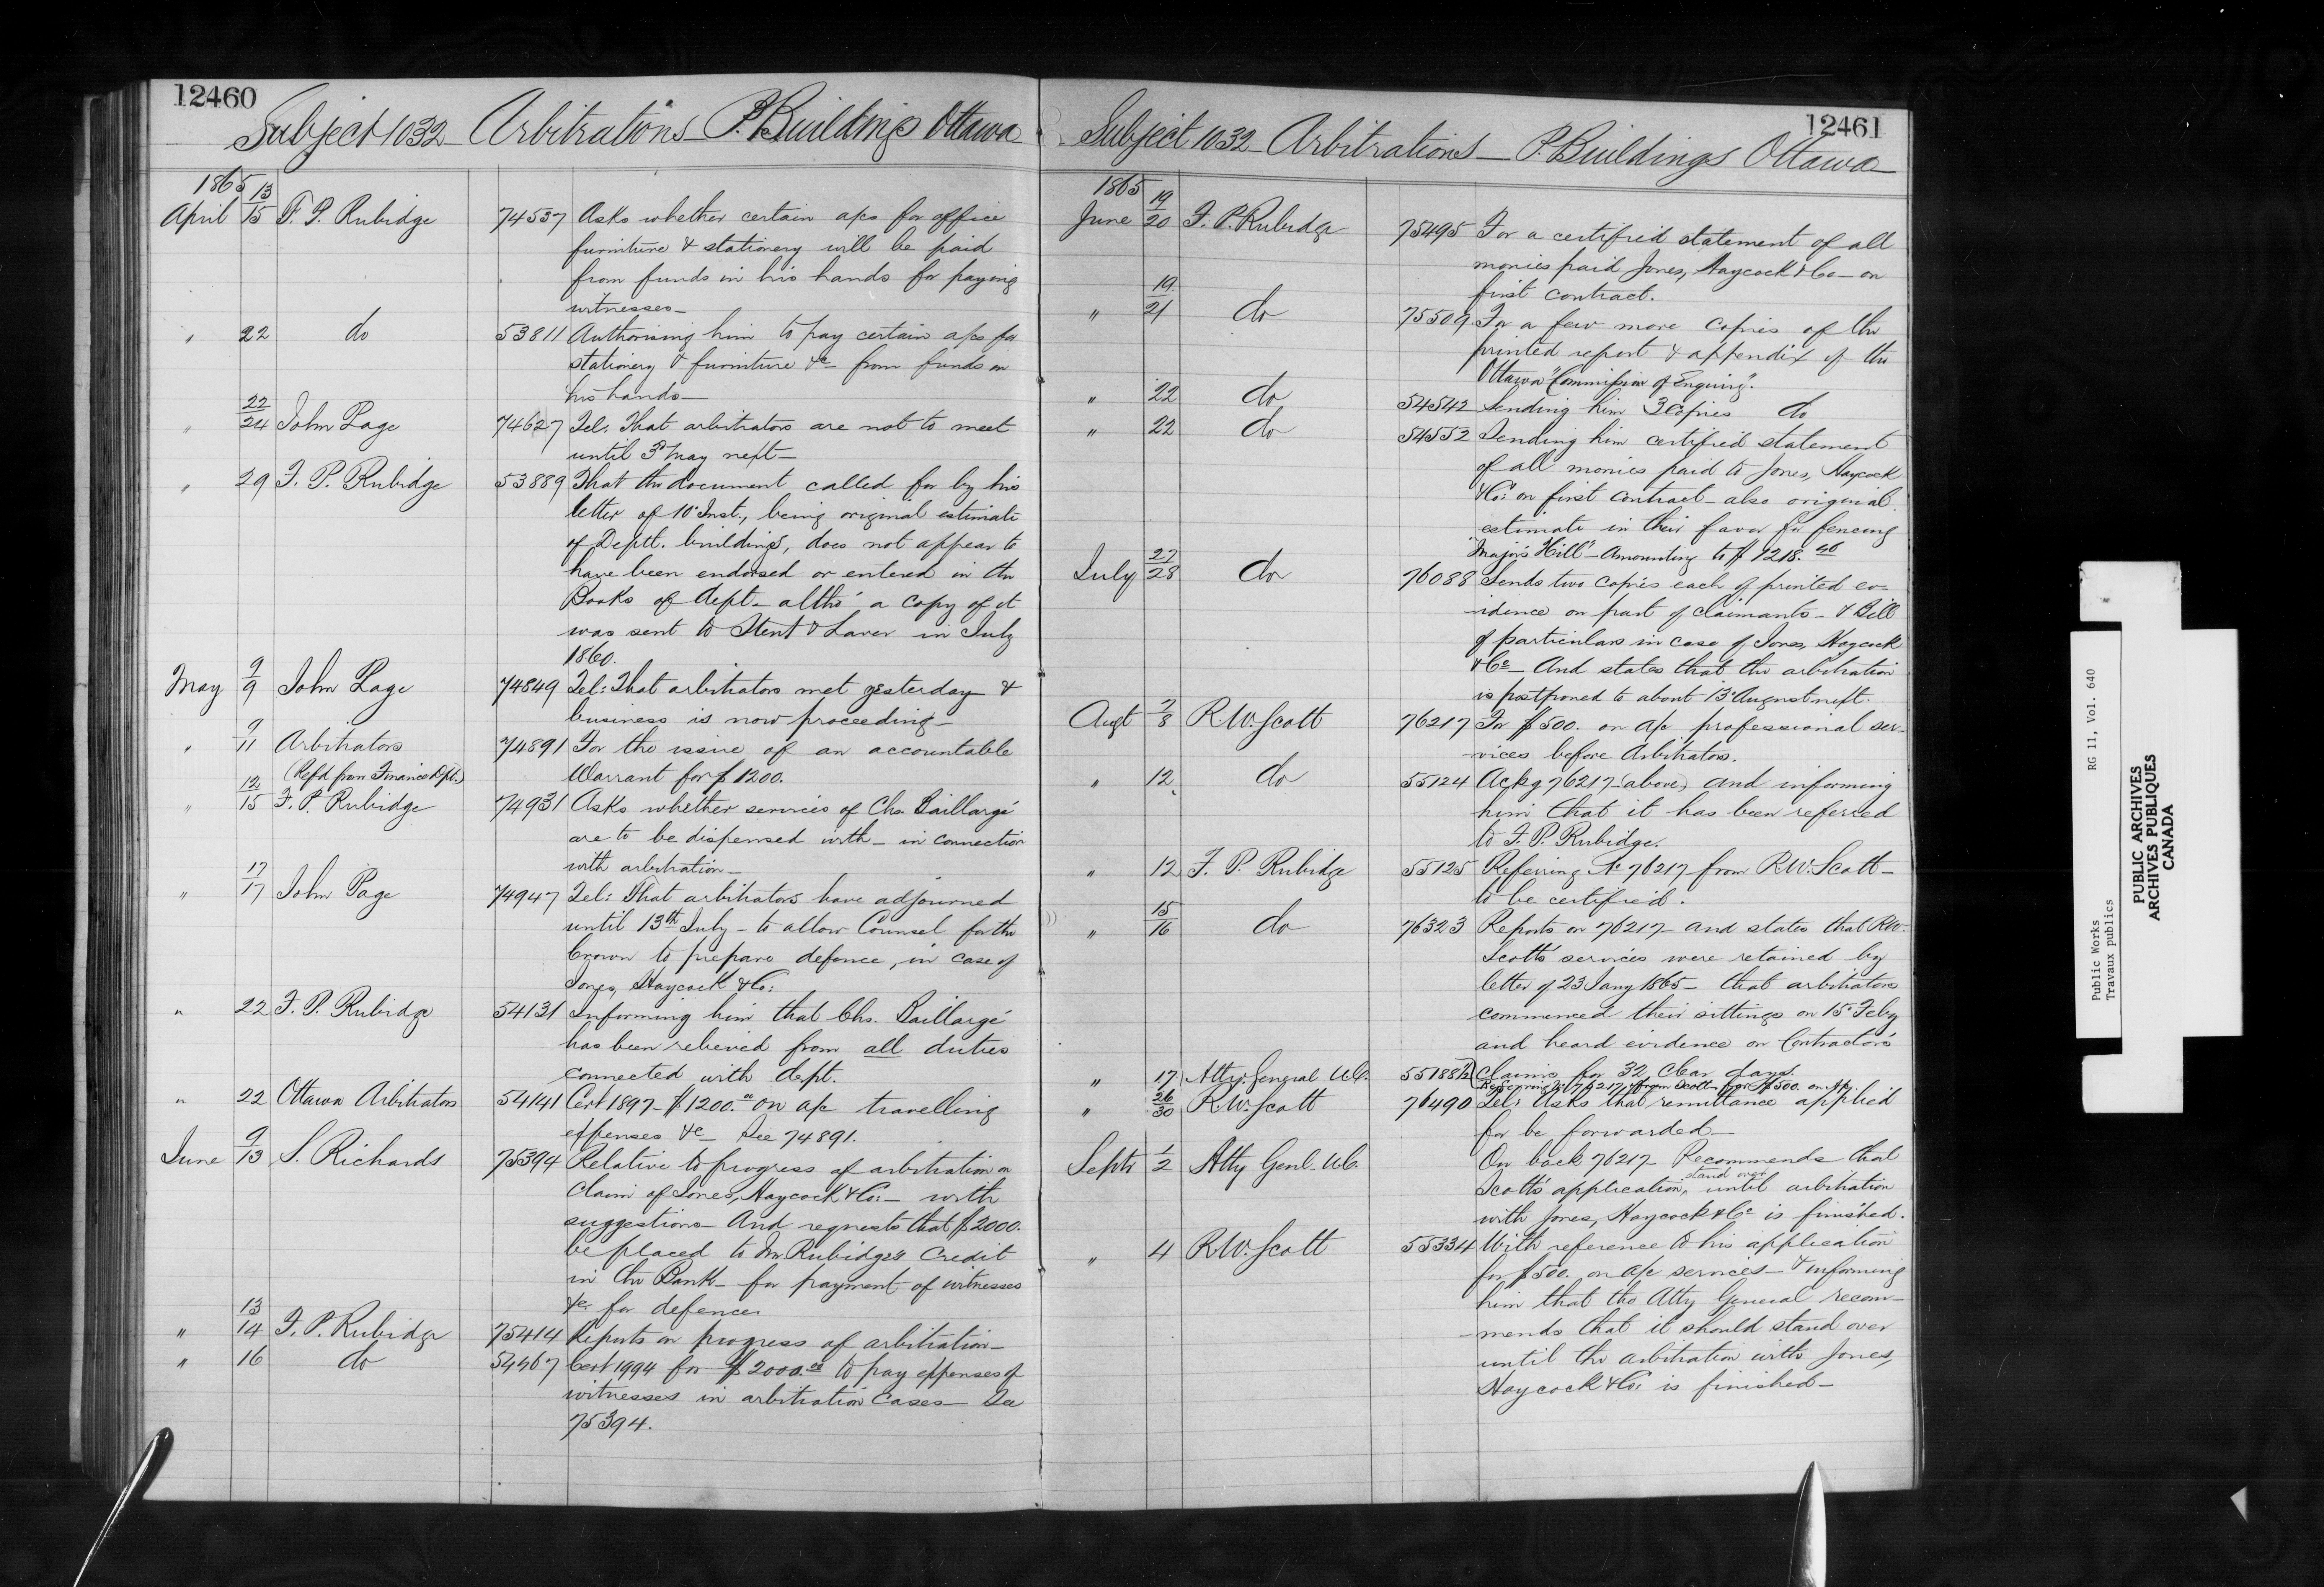 12460
Subject 1032 - Arbitrations - P. Buildings Ottawa
1865
April 13/15 F. P. Rubidge 74537 Asks whether certain a/cs for office
furniture & stationery will be paid
from funds in his hands for paying
witnesses -
" 22 do 53811 Authorising him to pay certain a/cs for
stationery & furniture &c - from funds in
his hands -
" 22/24 John Page 74627 Tel: That arbitrators are not to meet
until 3d May next -
" 29 F. P. Rubidge 53889 That the document called for by his
letter of 10 Inst., being original estimate
of Deptl. buildings, does not appear to
have been endorsed or entered in the
Books of Dept - altho' a copy of it
was sent to Stent & Laver in July
1860.
May 9/9 John Page 74849 Tel: That arbitrators met yesterday &
business is now proceeding -
" 9/11 Arbitrators 74891 For the issue of an accountable
(Refd from Finance Dpt.) Warrant for $1200.
" 12/15 F. P. Rubidge 74931 Asks whether services of Chs. Baillargé
are to be dispensed with - in connection
with arbitration -
" 17/17 John Page 74947 Tel: That arbitrators have adjourned
until 13th July - to allow Counsel for the
Crown to prepare defence, in case of
Jones, Haycock & Co:
" 22 F. P. Rubidge 54131 Informing him that Chs. Baillargé
has been relieved from all duties
connected with dept.
" 22 Ottawa Arbitrators 54141 Cert 1897 - $1200.00 on a/c travelling
expenses &c - See 74891.
June 9/13 S. Richards 75394 Relative to progress of arbitration on
Claim of Jones, Haycock & Co: - with
suggestions - And requests that $2000.
be placed to Mr Rubidge's Credit
in the Bank - for payment of witnesses
&c for defence.
" 13/14 F. P. Rubidge 75414 Reports on progress of arbitration -
" 16 do 54467 Cert 1994 for $2000.00 to pay expenses of
witnesses in arbitration Cases - See
75394.
12461
Subject 1032 - Arbitrations - P. Buildings Ottawa
1865
June 19/20 F. P. Rubidge 75495 For a certified statement of all
monies paid Jones, Haycock & Co - on
first contract.
" 19/21 do 75509 For a few more copies of the
printed report & appendix of the
Ottawa "Commission of Enquiry".
" 22 do 54542 Sending him 3 Copies do
" 22 do 54552 Sending him certified statement
of all monies paid to Jones, Haycock
& Co: on first contract - also original
estimate in their favor for fencing
"Major's Hill" - Amounting to $1218.
July 27/28 do 76088 Sends two copies each of printed ev-
-idence on part of claimants - & Bill
of particulars in case of Jones, Haycock
& Co - And states that the arbitration
is postponed to about 13 August next.
Augt 7/8 R. W. Scott 76217 For $500. on a/c professional ser-
-vices before Arbitrators.
" 12 do 55124 Ackg 76217 (above) and informing
him that it has been referred
to F. P. Rubidge.
" 12 F. P. Rubidge 55125 Referring No 76217 from R. W. Scott -
to be certified.
" 15/16 do 76323 Reports on 76217 and states that R. W.
Scott's services were retained by
letter of 23 Jany 1865 - that arbitrators
commenced their sittings on 15 Feby
and heard evidence on Contractors
Claims for 32 clear days.
" 17 Atty: General U.C. 55188½ Referring No 76217 from Scott - for $500. on a/c
" 26/30 R. W. Scott 76490 Tel: Asks that remittance applied
for be forwarded -
Septr 1/2 Atty Genl. U.C. On back 76217 - Recommends that
Scott's application stand over until arbitration
with Jones, Haycock & Co is finished.
" 4 R. W. Scott 55334 With reference to his application
for $500. on a/c services - & informing
him that the Atty General recom-
-mends that it should stand over
until the arbitration with Jones,
Haycock & Co: is finished -
Public Works RG 11, Vol. 640
Travaux publics
PUBLIC ARCHIVES
ARCHIVES PUBLIQUES
CANADA